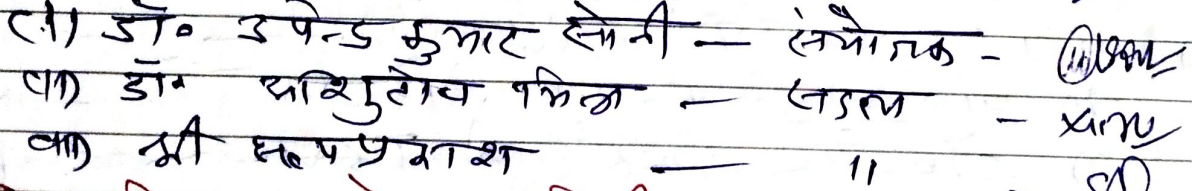 (i) डॉ० उपेन्द्र कुमार सोनी — संयोजक -
(ii) डॉ० आशुतोष मिश्रा — सदस्य -
(iii) श्री सत्यप्रकाश — "